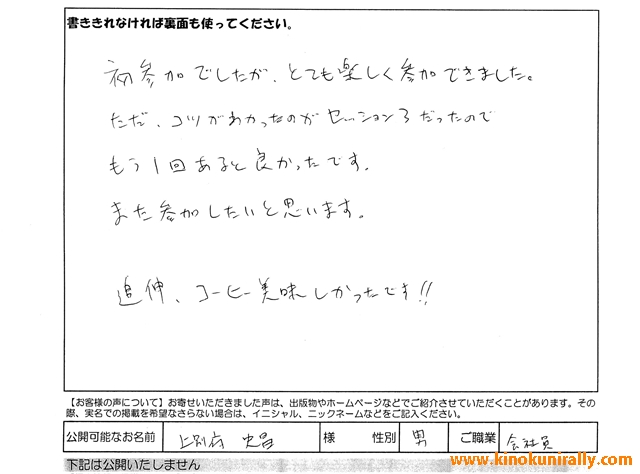 書ききれなければ裏面も使ってください。
初参加でしたが、とても楽しく参加できました。
ただ、コツがわかったのがセッション3だったので
もう1回あると良かったです。
また参加したいと思います。
追伸、コーヒー美味しかったです!!
【お客様の声について】お寄せいただきました声は、出版物やホームページなどでご紹介させていただくことがあります。その
際、実名での掲載を希望なさらない場合は、イニシャル、ニックネームなどをご記入ください。
公開可能なお名前 上別府 史昌 様 性別 男 ご職業 会社員
下記は公開いたしません
www.kinokunirally.com